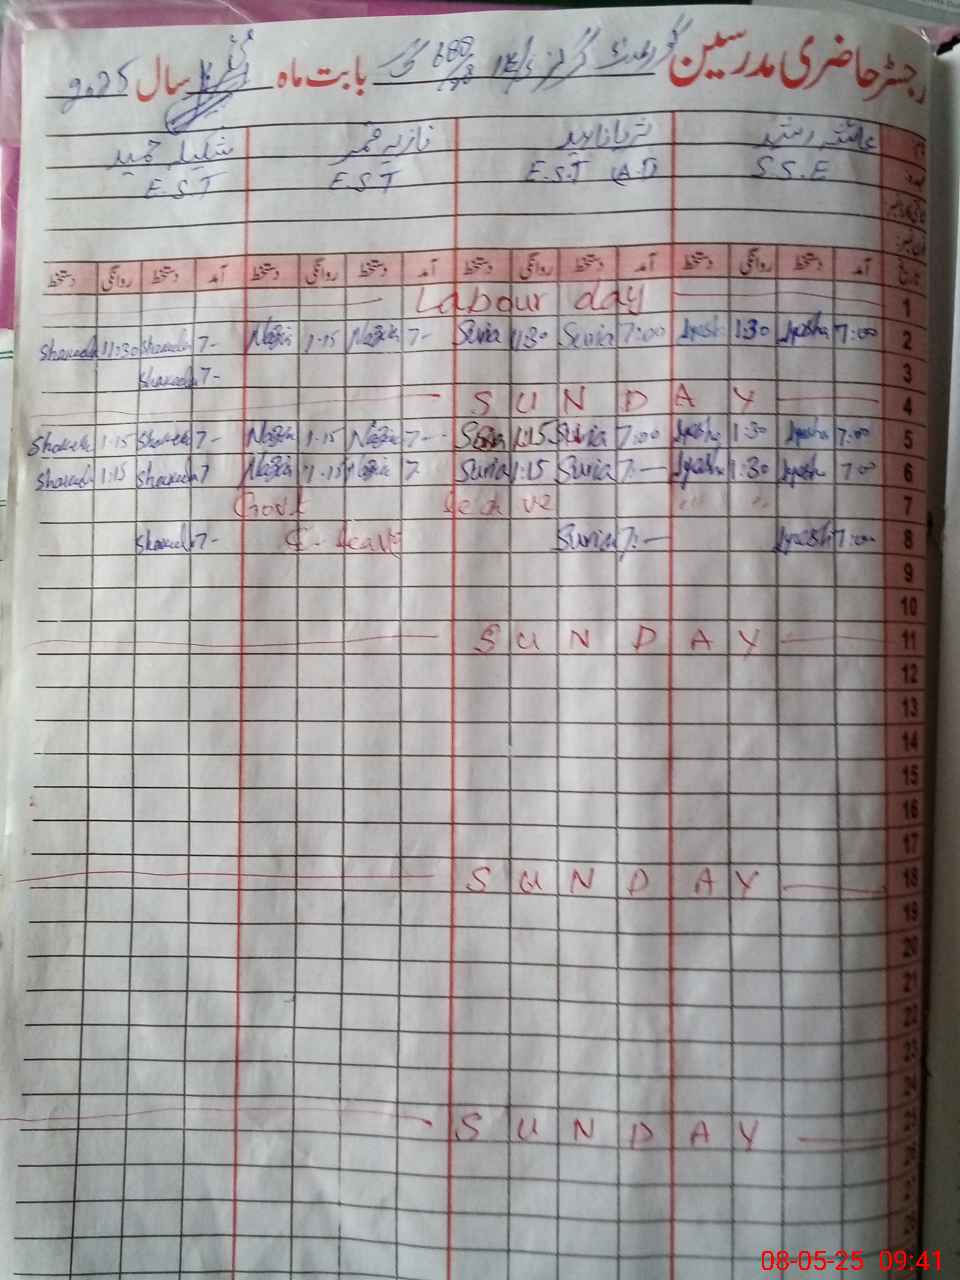 رجسٹر حاضری مدرسین گورنمنٹ گرلز بابت ماہ مئی سال 2025
عائشہ رشید نازیہ شکیلہ حمید
S.S.E E.S.T (A.D) E.S.T E.S.T
تاریخ آمد دستخط روانگی دستخط آمد دستخط روانگی دستخط آمد دستخط روانگی دستخط آمد دستخط روانگی دستخط
1 Labour day
2 7:00 Ayesha 1:30 Ayesha 7:00 Suria 1:30 Suria 7- Nazia 1-15 Nazia 7- Shakeela 11:30 Shakeela
3 7- Shakeela
4 SUNDAY
5 7:00 Ayesha 1:30 Ayesha 7:00 Suria 1:15 Suria 7- Nazia 1-15 Nazia 7- Shakeela 1-15 Shakeela
6 7:00 Ayesha 1:30 Ayesha 7:- Suria 1:15 Suria 7- Nazia 1-15 Nazia 7 Shakeela 1:15 Shakeela
7 Govt leave
8 7:00 Ayesha 7:- Suria C-leave 7- Shakeela
9
10
11 SUNDAY
12
13
14
15
16
17
18 SUNDAY
19
20
21
22
23
24
25 SUNDAY
26
27
28
08-05-25 09:41